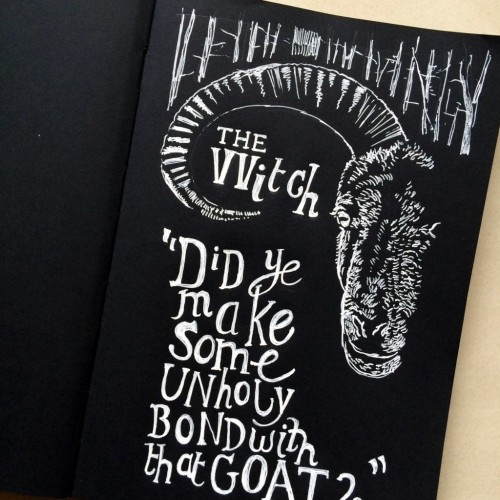 THE
VVitch
"DiD ye
make
some
UNholy
BOND with
that GOAT?"